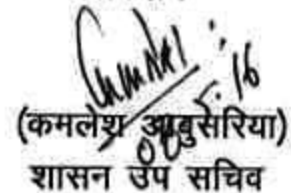 (कमलेश आबुसेरिया)
शासन उप सचिव